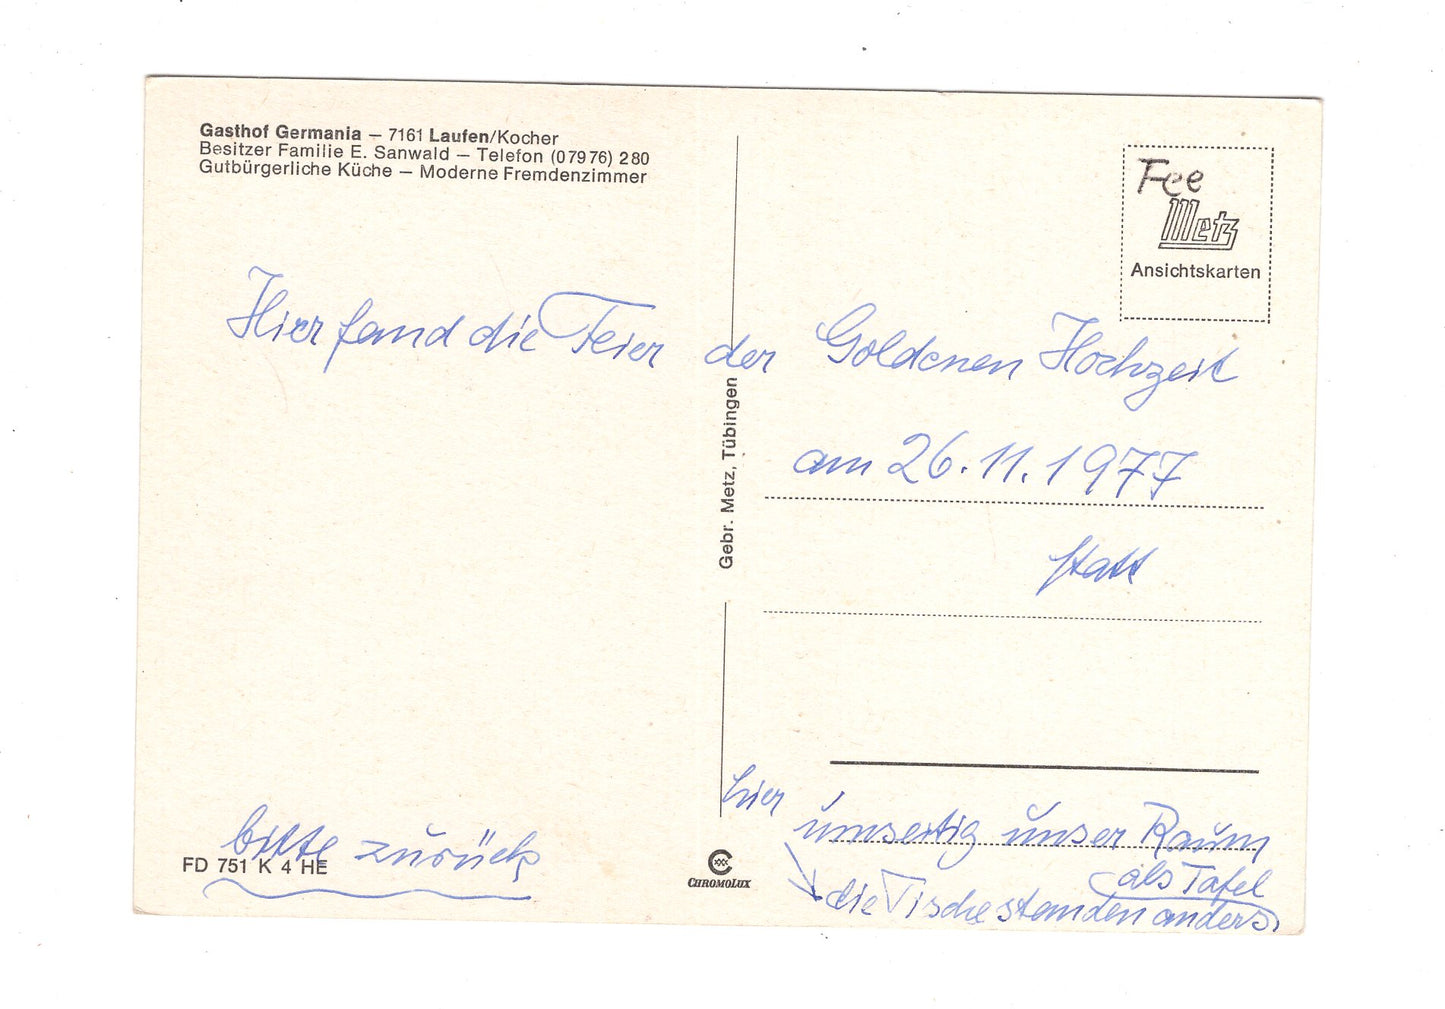 Gasthof Germania – 7161 Laufen/Kocher
Besitzer Familie E. Sanwald – Telefon (07976) 280
Gutbürgerliche Küche – Moderne Fremdenzimmer
Fee
Metz
Ansichtskarten
Hier fand die Feier der Goldenen Hochzeit
am 26.11.1977
statt
Gebr. Metz, Tübingen
hier
umseitig unser Raum
als Tafel
die Tische standen anders.
bitte zurück
FD 751 K 4 HE
CHROMOLUX